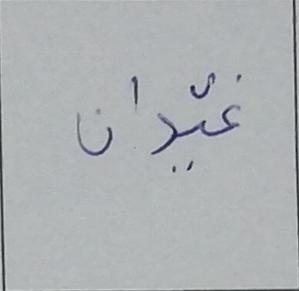 غيّدان